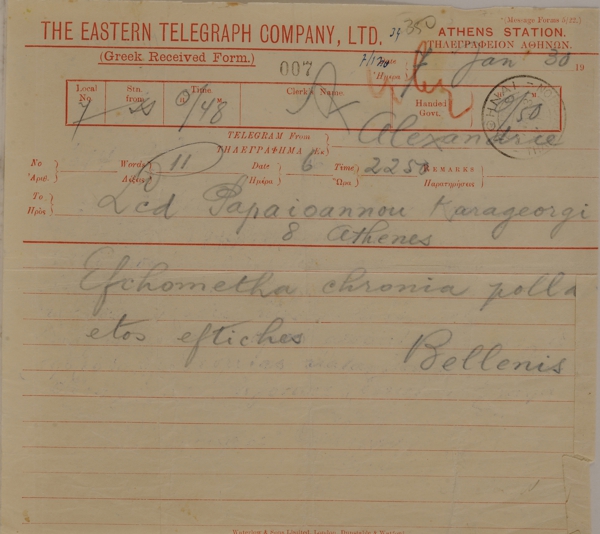 (Message Forms 5/22.)
THE EASTERN TELEGRAPH COMPANY, LTD. 350 ATHENS STATION.
ΤΗΛΕΓΡΑΦΕΙΟΝ ΑΘΗΝΩΝ.
(Greek Received Form.) 007 Date Ἡμέρα 7 Jan 30 19
Local No. 7 Stn. from Time 9/48 Clerk's Name Handed Govt. 9/50
TELEGRAM From Alexandrie
ΤΗΛΕΓΡΑΦΗΜΑ
No Ἀριθ. Words Λέξεις 11 Date Ἡμέρα 6 Time Ὥρα 2250 REMARKS Παρατηρήσεις
To Πρὸς Lcd Papaioannou Karageorgi
8 Athenes
Efchometha chronia polla
etos eftiches Bellenis